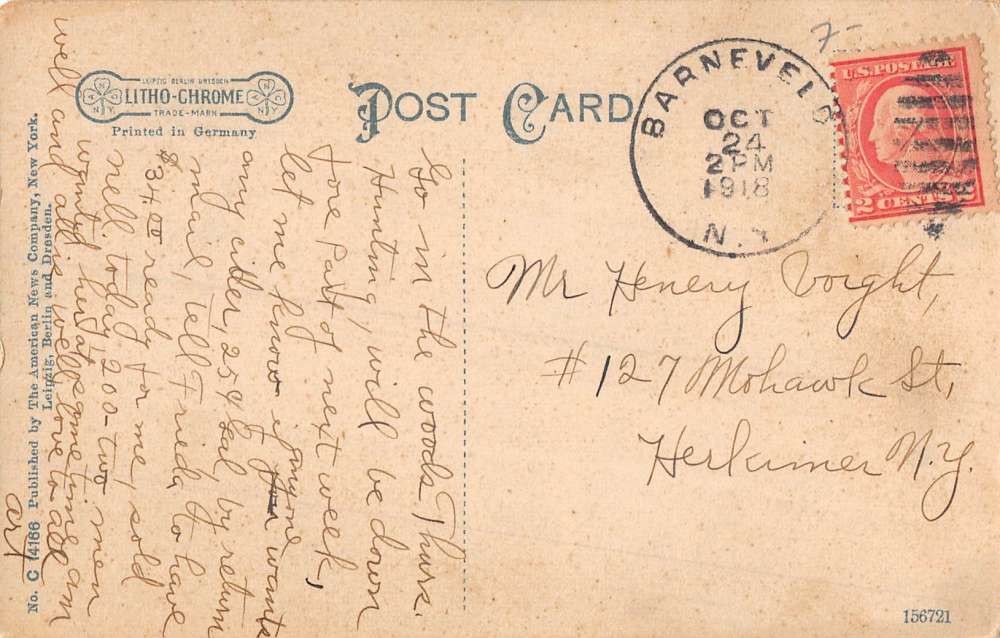 LEIPZIG BERLIN DRESDEN
LITHO-CHROME
TRADE-MARK
N Y
N Y
Printed in Germany
POST CARD
BARNEVELD
OCT
24
2 PM
1918
N.Y.
7-
U.S. POSTAGE
2 CENTS 2
Mr Henery Voight,
#127 Mohawk St,
Herkimer N.Y.
Go in the woods Thurs.
Hunting, will be down
fore part of next week,
let me know if any one wants
any cider, 25¢ gal, by return
mail, Tell Frieda to have
$34.00 ready for me, sold
nell today, 200- two men
wanted her at same time, am
well and all is well love to all
art
No. C 14166 Published by The American News Company, New York.
Leipzig, Berlin and Dresden.
156721